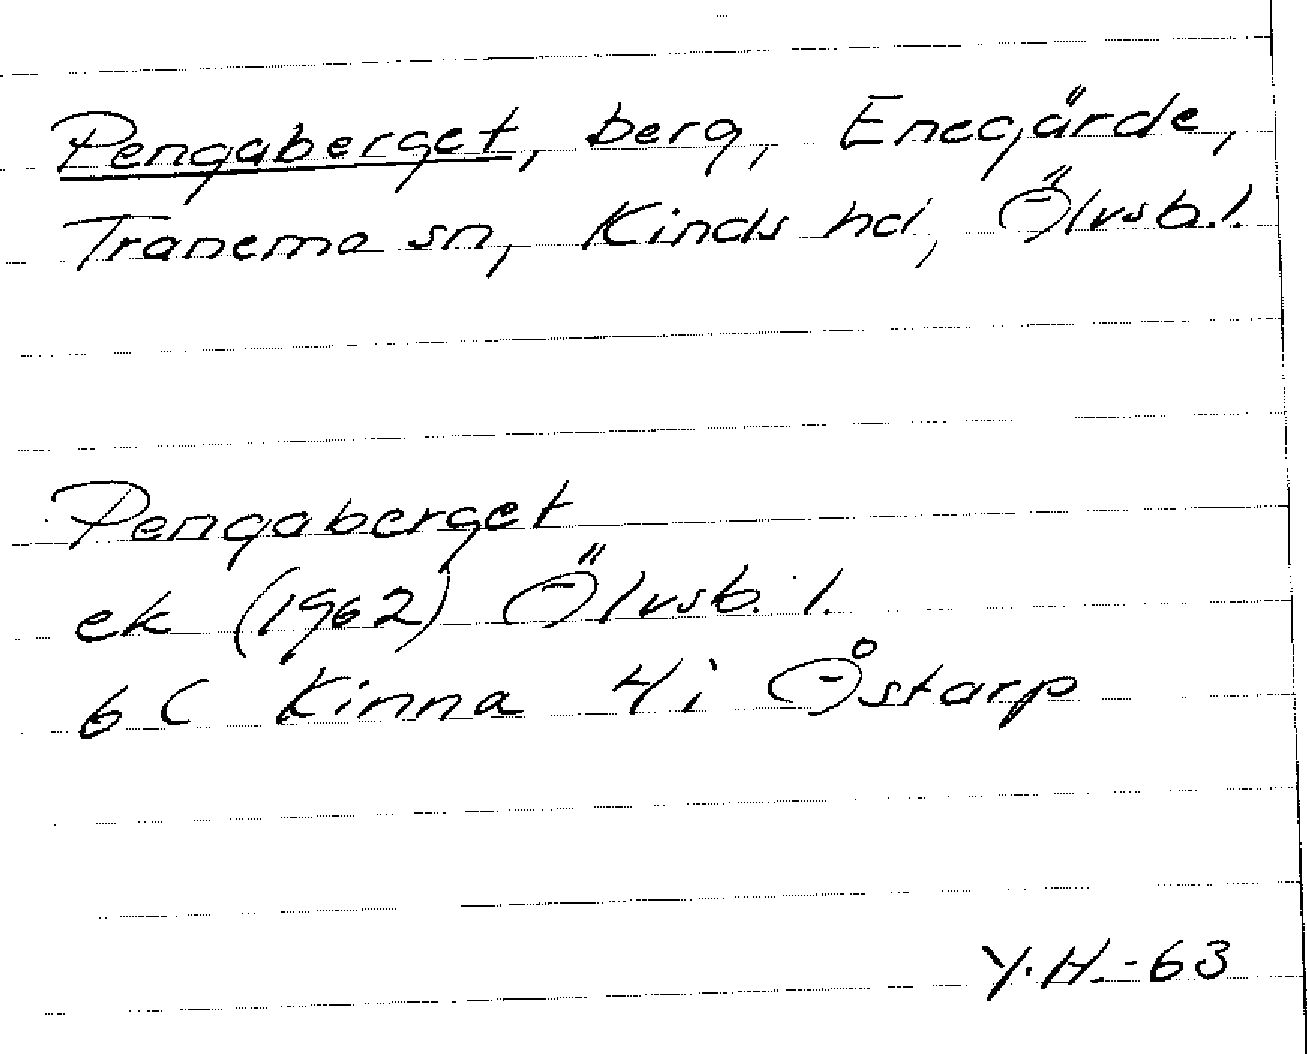 Pengaberget, berg, Enegärde,
Tranemo sn, Kinds hd, Älvsb. l.
Pengaberget
ek (1962) Älvsb. l.
6 C Kinna 4 i Åstarp
Y.H. -63